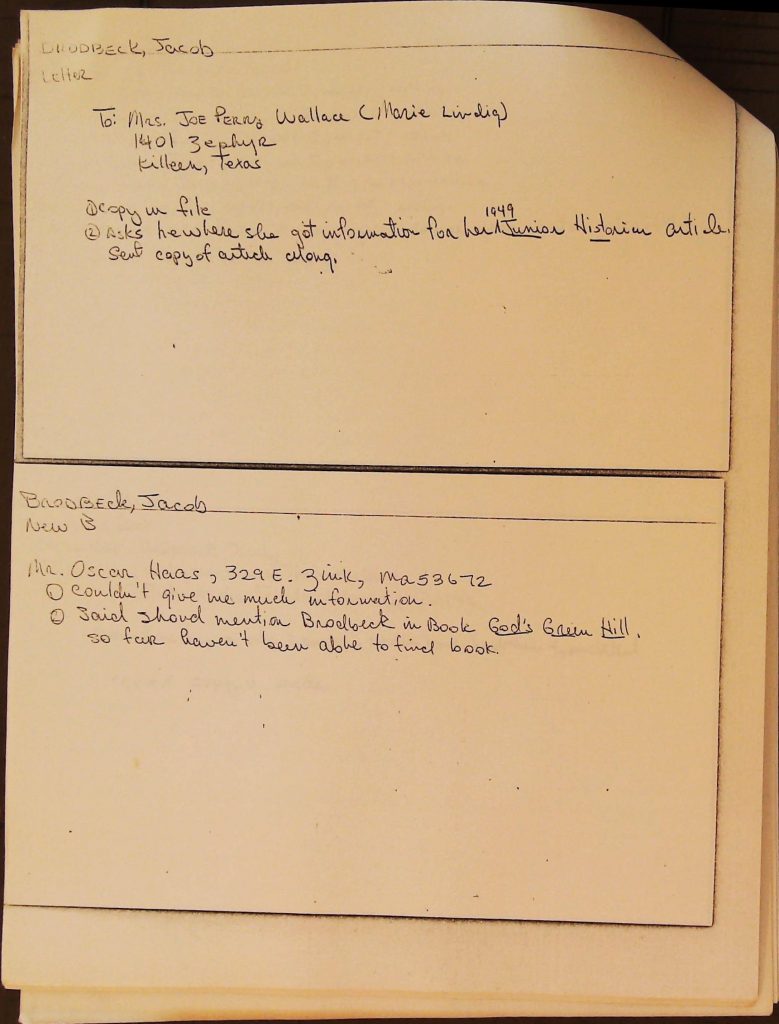 BRODBECK, Jacob
Letter
To: Mrs. Joe Perry Wallace (Marie Lindig)
1401 Zephyr
Killeen, Texas
① copy in file
1949
② Asks her where she got information for her Junior Historian article.
Sent copy of article along.
BRODBECK, Jacob
New B
Mr. Oscar Haas, 329 E. Zink, Ma53672
① Couldn't give me much information.
② Said shoud mention Brodbeck in Book God's Green Hill.
so far haven't been able to find book.